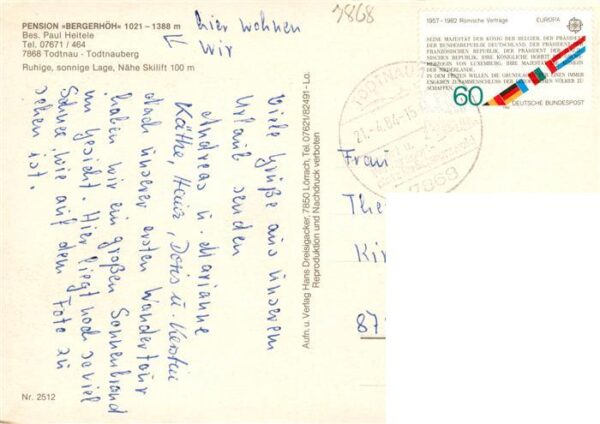 PENSION »BERGERHÖH« 1021 – 1388 m
Bes. Paul Heitele
Tel. 07671 / 464
7868 Todtnau - Todtnauberg
Ruhige, sonnige Lage, Nähe Skilift 100 m
hier wohnen
wir
7868
Viele Grüße aus unserem
Urlaub senden
Andreas u. Marianne
Käthe, Heinz, Doris u. Kerstin
Nach unserer ersten Wandertour
haben wir ein großen Sonnenbrand
im Gesicht. Hier liegt noch soviel
Schnee, wie auf dem Foto zu
sehen ist.
Nr. 2512
Aufn. u. Verlag Hans Dreisigacker, 7850 Lörrach, Tel. 07621/82491 - Lo.
Reproduktion und Nachdruck verboten
1957 - 1982 Römische Verträge
EUROPA
CEPT
SEINE MAJESTÄT DER KÖNIG DER BELGIER, DER PRÄSIDENT
DER BUNDESREPUBLIK DEUTSCHLAND, DER PRÄSIDENT DER
FRANZÖSISCHEN REPUBLIK, DER PRÄSIDENT DER ITALIENISCHEN REPUBLIK, IHRE KÖNIGLICHE HOHEIT DIE GROSS-
HERZOGIN VON LUXEMBURG, IHRE MAJESTÄT DIE KÖNIGIN
DER NIEDERLANDE,
IN DEM FESTEN WILLEN, DIE GRUNDLAGEN FÜR EINEN IMMER
ENGEREN ZUSAMMENSCHLUSS DER EUROPÄISCHEN VÖLKER ZU
SCHAFFEN,
60
DEUTSCHE BUNDESPOST
21.4.84-16
7868
Frau
The
Kir
87